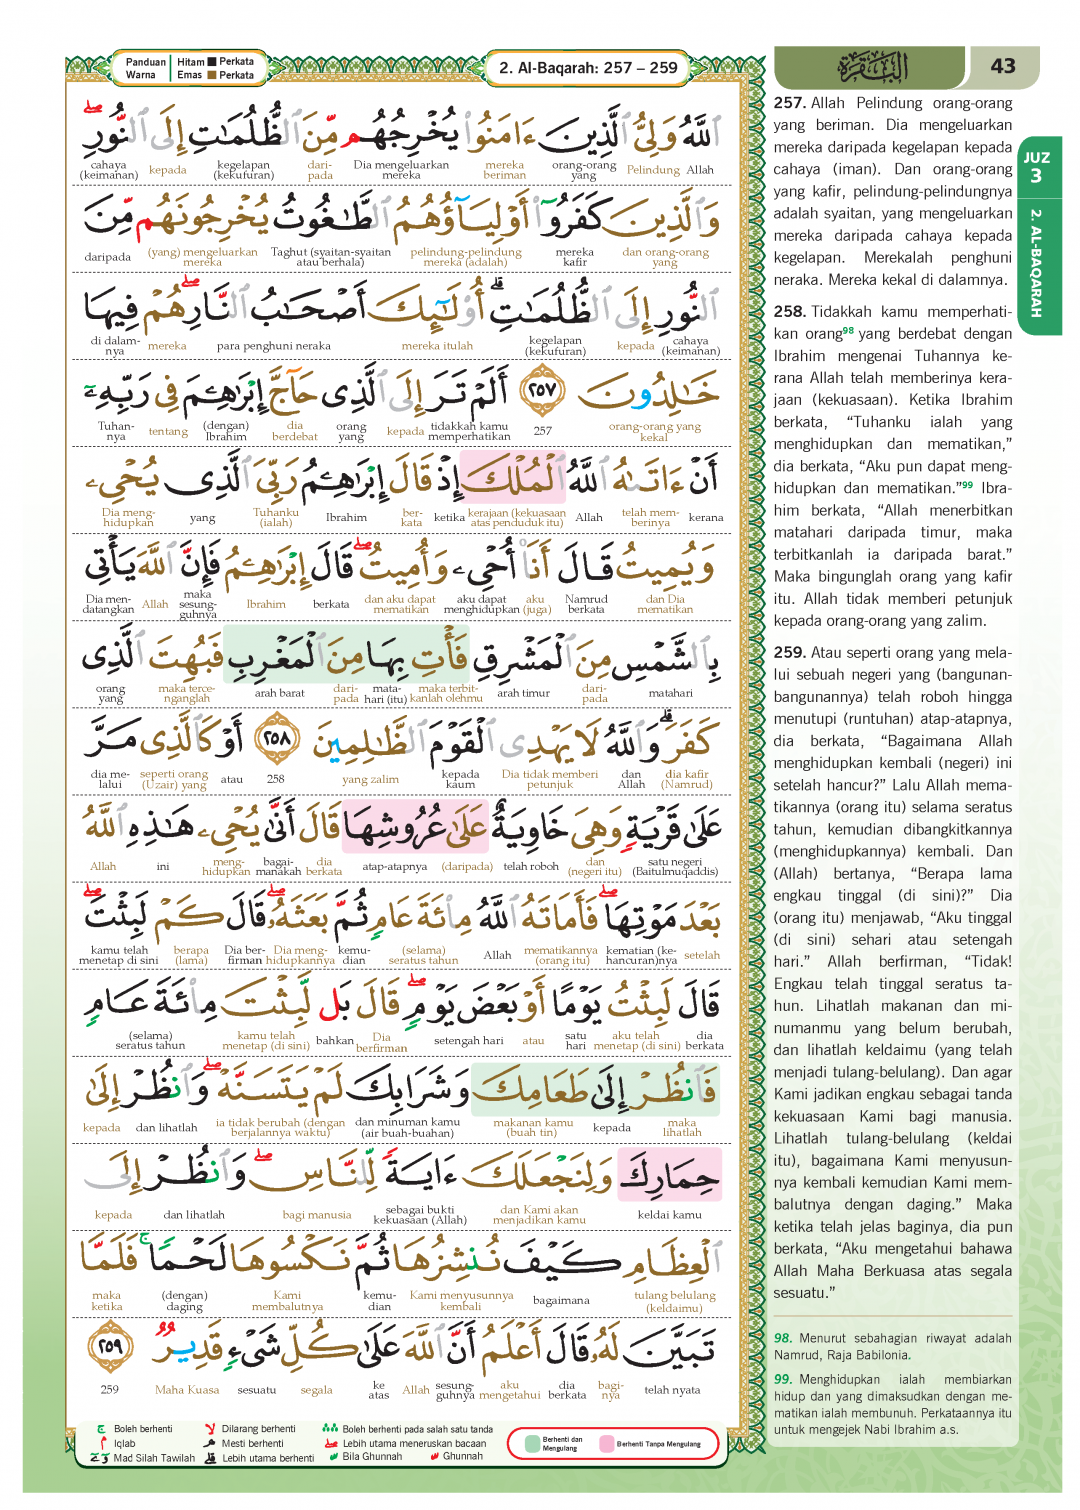 Panduan Warna
Hitam Perkata
Emas Perkata
2. Al-Baqarah: 257 – 259
ٱللَّهُ وَلِىُّ ٱلَّذِينَ ءَامَنُوا۟ يُخْرِجُهُم مِّنَ ٱلظُّلُمَـٰتِ إِلَى ٱلنُّورِ ۖ
cahaya (keimanan) kepada kegelapan (kekufuran) dari-pada Dia mengeluarkan mereka mereka beriman orang-orang yang Pelindung Allah
وَٱلَّذِينَ كَفَرُوٓا۟ أَوْلِيَآؤُهُمُ ٱلطَّـٰغُوتُ يُخْرِجُونَهُم مِّنَ
daripada (yang) mengeluarkan mereka Taghut (syaitan-syaitan atau berhala) pelindung-pelindung mereka (adalah) mereka kafir dan orang-orang yang
ٱلنُّورِ إِلَى ٱلظُّلُمَـٰتِ ۗ أُو۟لَـٰٓئِكَ أَصْحَـٰبُ ٱلنَّارِ ۖ هُمْ فِيهَا
di dalam-nya mereka para penghuni neraka mereka itulah kegelapan (kekufuran) kepada cahaya (keimanan)
خَـٰلِدُونَ ٢٥٧ أَلَمْ تَرَ إِلَى ٱلَّذِى حَآجَّ إِبْرَٰهِـۧمَ فِى رَبِّهِۦٓ
Tuhan-nya tentang (dengan) Ibrahim dia berdebat orang yang kepada tidakkah kamu memperhatikan 257 orang-orang yang kekal
أَنْ ءَاتَىٰهُ ٱللَّهُ ٱلْمُلْكَ إِذْ قَالَ إِبْرَٰهِـۧمُ رَبِّىَ ٱلَّذِى يُحْىِۦ
Dia meng-hidupkan yang Tuhanku (ialah) Ibrahim ber-kata ketika kerajaan (kekuasaan atas penduduk itu) Allah telah mem-berinya kerana
وَيُمِيتُ قَالَ أَنَا۠ أُحْىِۦ وَأُمِيتُ ۖ قَالَ إِبْرَٰهِـۧمُ فَإِنَّ ٱللَّهَ يَأْتِى
Dia men-datangkan Allah maka sesung-guhnya Ibrahim berkata dan aku dapat mematikan aku dapat menghidupkan aku (juga) Namrud berkata dan Dia mematikan
بِٱلشَّمْسِ مِنَ ٱلْمَشْرِقِ فَأْتِ بِهَا مِنَ ٱلْمَغْرِبِ فَبُهِتَ ٱلَّذِى
orang yang maka terce-nganglah arah barat dari-pada mata-hari (itu) maka terbit-kanlah olehmu arah timur dari-pada matahari
كَفَرَ ۗ وَٱللَّهُ لَا يَهْدِى ٱلْقَوْمَ ٱلظَّـٰلِمِينَ ٢٥٨ أَوْ كَٱلَّذِى مَرَّ
dia me-lalui seperti orang (Uzair) yang atau 258 yang zalim kepada kaum Dia tidak memberi petunjuk dan Allah dia kafir (Namrud)
عَلَىٰ قَرْيَةٍ وَهِىَ خَاوِيَةٌ عَلَىٰ عُرُوشِهَا قَالَ أَنَّىٰ يُحْىِۦ هَـٰذِهِ ٱللَّهُ
Allah ini meng-hidupkan bagai-manakah dia berkata atap-atapnya (daripada) telah roboh dan (negeri itu) satu negeri (Baitulmuqaddis)
بَعْدَ مَوْتِهَا ۖ فَأَمَاتَهُ ٱللَّهُ مِا۟ئَةَ عَامٍ ثُمَّ بَعَثَهُۥ ۖ قَالَ كَمْ لَبِثْتَ ۖ
kamu telah menetap di sini berapa (lama) Dia ber-firman Dia meng-hidupkannya kemu-dian (selama) seratus tahun Allah mematikannya (orang itu) kematian (ke-hancuran)nya setelah
قَالَ لَبِثْتُ يَوْمًا أَوْ بَعْضَ يَوْمٍ ۖ قَالَ بَل لَّبِثْتَ مِا۟ئَةَ عَامٍ
(selama) seratus tahun kamu telah menetap (di sini) bahkan Dia berfirman setengah hari atau satu hari aku telah menetap (di sini) dia berkata
فَٱنظُرْ إِلَىٰ طَعَامِكَ وَشَرَابِكَ لَمْ يَتَسَنَّهْ ۖ وَٱنظُرْ إِلَىٰ
kepada dan lihatlah ia tidak berubah (dengan berjalannya waktu) dan minuman kamu (air buah-buahan) makanan kamu (buah tin) kepada maka lihatlah
حِمَارِكَ وَلِنَجْعَلَكَ ءَايَةً لِّلنَّاسِ ۖ وَٱنظُرْ إِلَى
kepada dan lihatlah bagi manusia sebagai bukti kekuasaan (Allah) dan Kami akan menjadikan kamu keldai kamu
ٱلْعِظَامِ كَيْفَ نُنشِزُهَا ثُمَّ نَكْسُوهَا لَحْمًا ۚ فَلَمَّا
maka ketika (dengan) daging Kami membalutnya kemu-dian Kami menyusunnya kembali bagaimana tulang belulang (keldaimu)
تَبَيَّنَ لَهُۥ قَالَ أَعْلَمُ أَنَّ ٱللَّهَ عَلَىٰ كُلِّ شَىْءٍ قَدِيرٌ ٢٥٩
259 Maha Kuasa sesuatu segala ke atas Allah sesung-guhnya aku mengetahui dia berkata bagi-nya telah nyata
Boleh berhenti
Iqlab
Mad Silah Tawilah
Dilarang berhenti
Mesti berhenti
Lebih utama berhenti
Boleh berhenti pada salah satu tanda
Lebih utama meneruskan bacaan
Bila Ghunnah
Ghunnah
Berhenti dan Mengulang
Berhenti Tanpa Mengulang
البقرة
43
JUZ 3
2. AL-BAQARAH
257. Allah Pelindung orang-orang
yang beriman. Dia mengeluarkan
mereka daripada kegelapan kepada
cahaya (iman). Dan orang-orang
yang kafir, pelindung-pelindungnya
adalah syaitan, yang mengeluarkan
mereka daripada cahaya kepada
kegelapan. Merekalah penghuni
neraka. Mereka kekal di dalamnya.
258. Tidakkah kamu memperhati-
kan orang98 yang berdebat dengan
Ibrahim mengenai Tuhannya ke-
rana Allah telah memberinya kera-
jaan (kekuasaan). Ketika Ibrahim
berkata, “Tuhanku ialah yang
menghidupkan dan mematikan,”
dia berkata, “Aku pun dapat meng-
hidupkan dan mematikan.”99 Ibra-
him berkata, “Allah menerbitkan
matahari daripada timur, maka
terbitkanlah ia daripada barat.”
Maka bingunglah orang yang kafir
itu. Allah tidak memberi petunjuk
kepada orang-orang yang zalim.
259. Atau seperti orang yang mela-
lui sebuah negeri yang (bangunan-
bangunannya) telah roboh hingga
menutupi (runtuhan) atap-atapnya,
dia berkata, “Bagaimana Allah
menghidupkan kembali (negeri) ini
setelah hancur?” Lalu Allah mema-
tikannya (orang itu) selama seratus
tahun, kemudian dibangkitkannya
(menghidupkannya) kembali. Dan
(Allah) bertanya, “Berapa lama
engkau tinggal (di sini)?” Dia
(orang itu) menjawab, “Aku tinggal
(di sini) sehari atau setengah
hari.” Allah berfirman, “Tidak!
Engkau telah tinggal seratus ta-
hun. Lihatlah makanan dan mi-
numanmu yang belum berubah,
dan lihatlah keldaimu (yang telah
menjadi tulang-belulang). Dan agar
Kami jadikan engkau sebagai tanda
kekuasaan Kami bagi manusia.
Lihatlah tulang-belulang (keldai
itu), bagaimana Kami menyusun-
nya kembali kemudian Kami mem-
balutnya dengan daging.” Maka
ketika telah jelas baginya, dia pun
berkata, “Aku mengetahui bahawa
Allah Maha Berkuasa atas segala
sesuatu.”
98. Menurut sebahagian riwayat adalah
Namrud, Raja Babilonia.
99. Menghidupkan ialah membiarkan
hidup dan yang dimaksudkan dengan me-
matikan ialah membunuh. Perkataannya itu
untuk mengejek Nabi Ibrahim a.s.